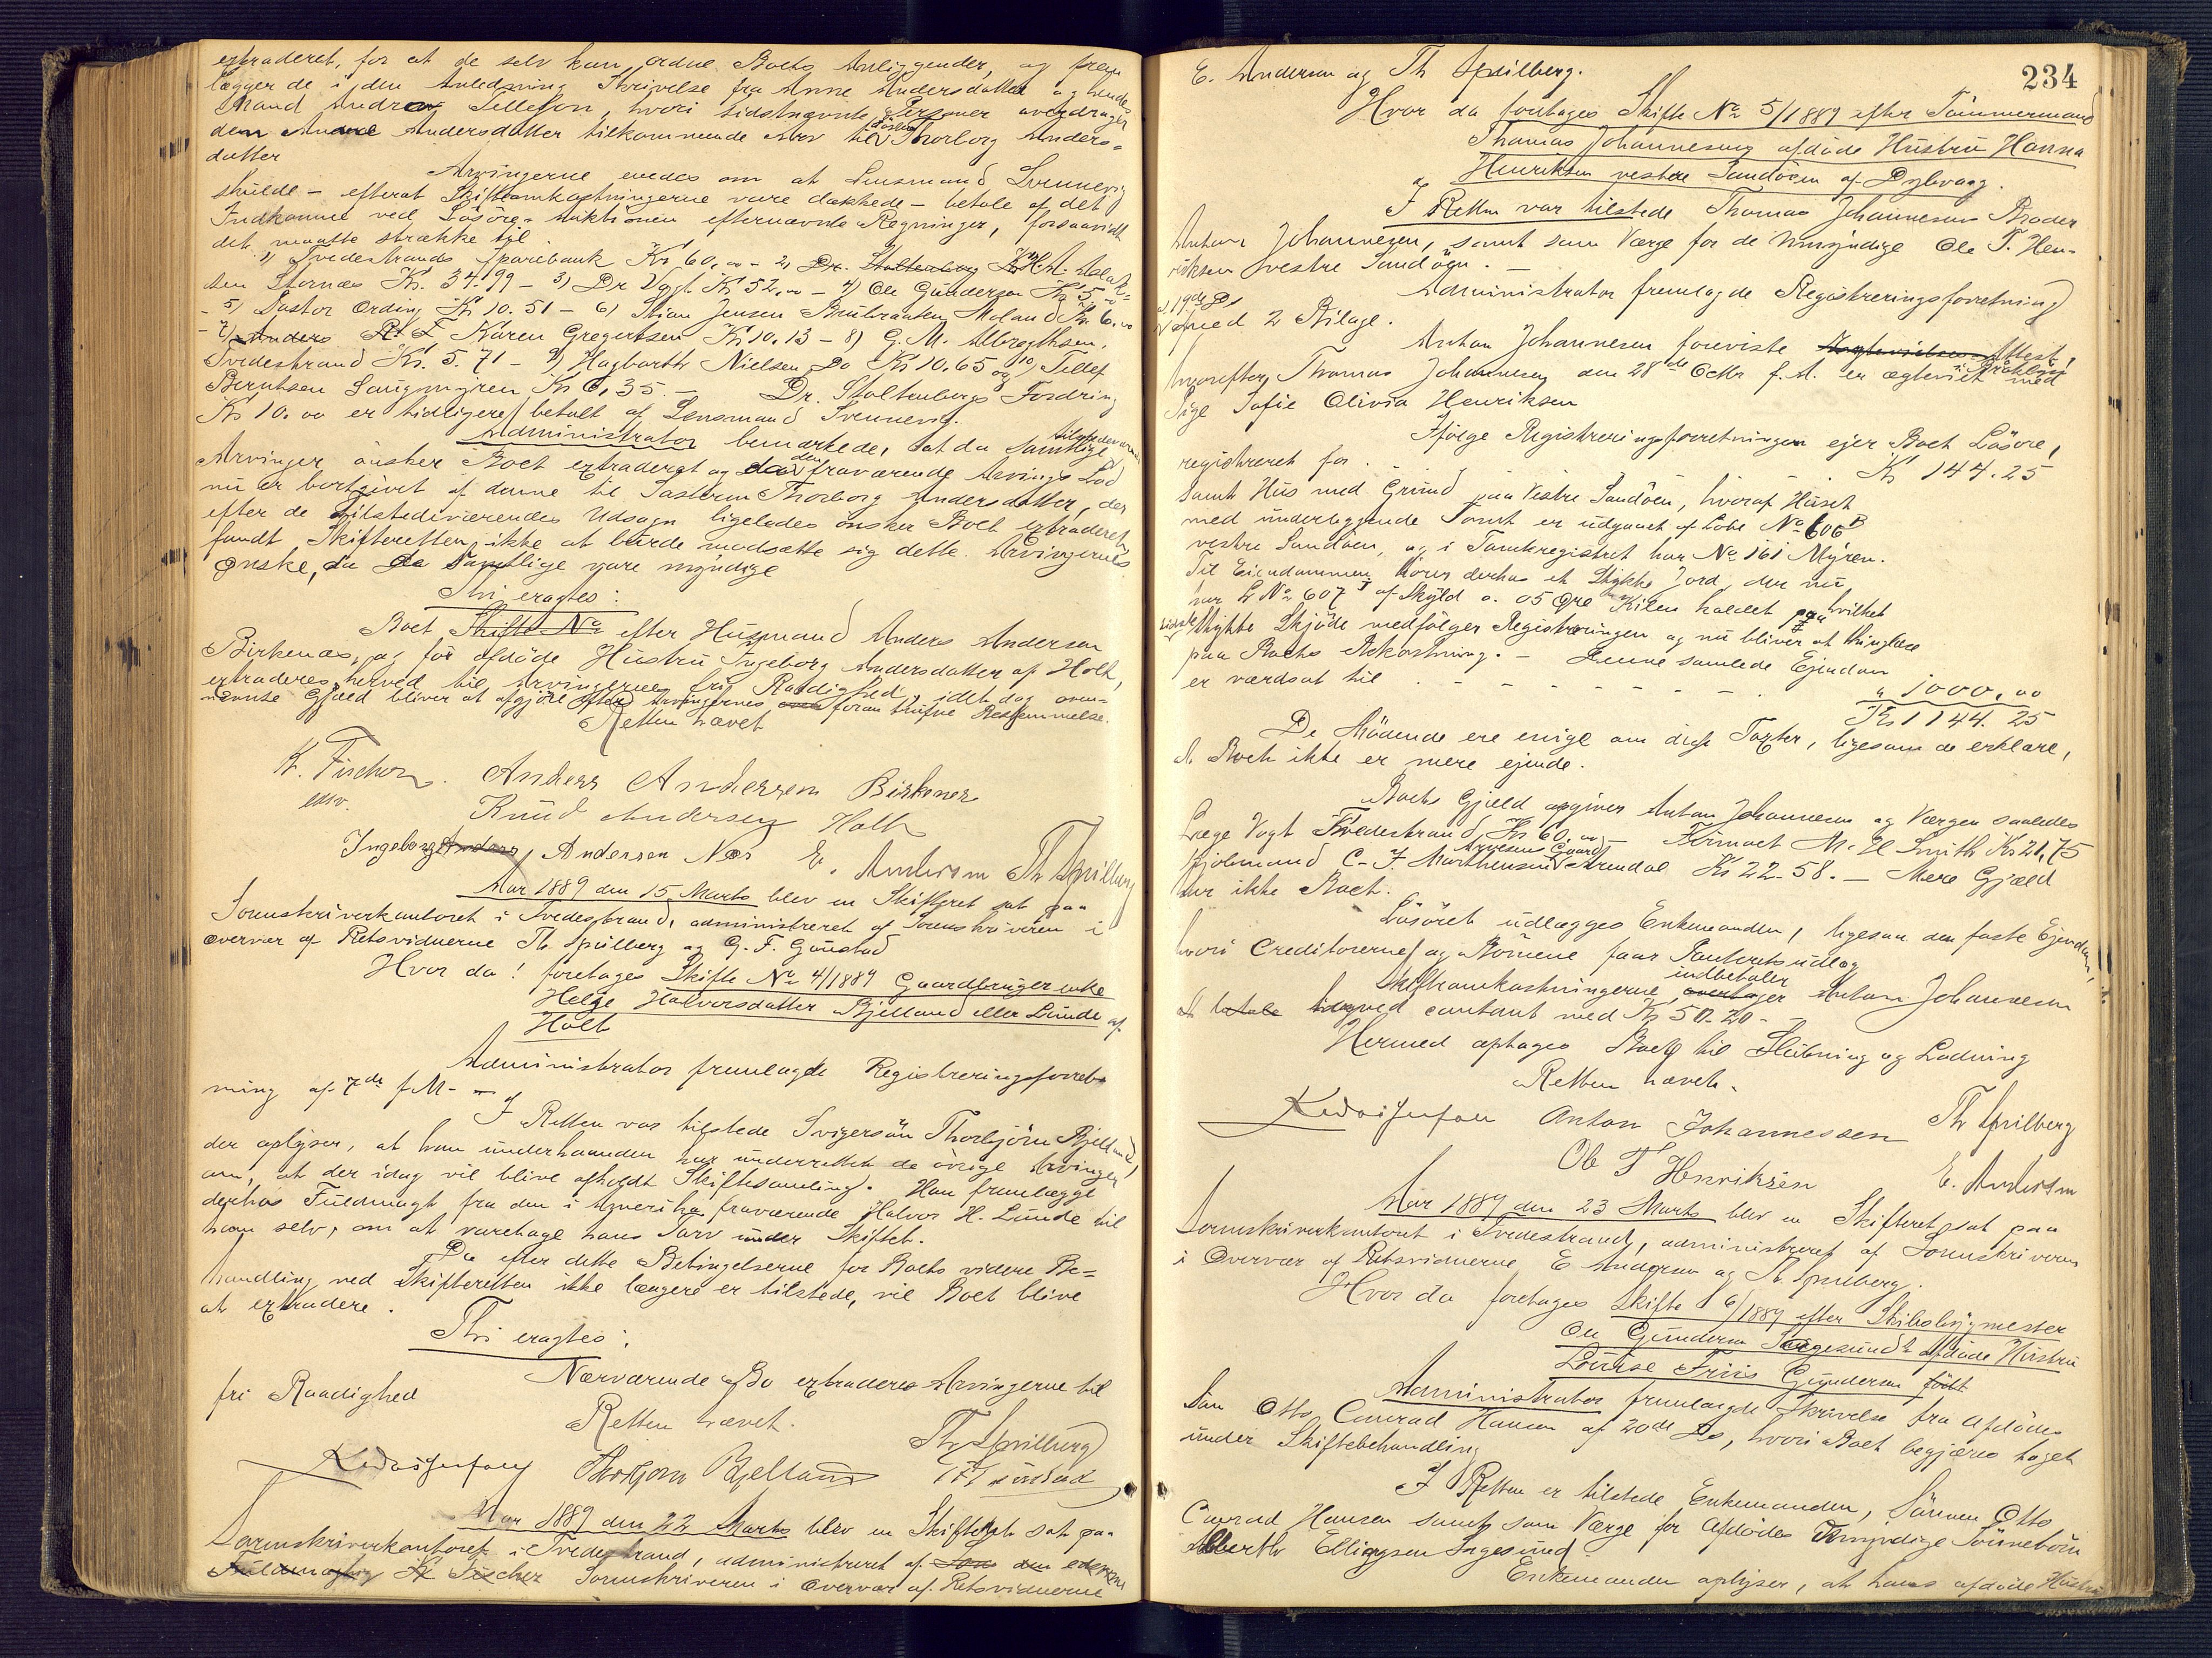 extraderet, for at de selv kan ordne Boets Anliggender, og frem
lægger de i den Anledning Skrivelse fra Anne Andersdatter og hendes
Mand Andreas Tellefsen, hvori sidstnævnte Personer overdrager
den Anne Andersdatter tilkommende Arv til Søsteren Thorborg Anders=
datter
Arvingerne enedes om at Lensmand Svennevig
skulde – efterat Skifteomkostningerne vare dækkede – betale af det
Indkomne ved Løsøre-Auktionen efternævnte Regninger, forsaavidt
det maatte strække til.
1) Tvedestrands Sparebank Kr 60,00 – 2) Dr. Stoltenberg H. A. Aslak=
sen Stornæs Kr. 34.99 – 3) Dr Vogt Kr 52,00 – 4) Ole Gunderson Kr 5
– 5) Pastor Ording Kr 10.51 – 6) Stian Jensen Moland Kr. 6.00
– 7) Anders Karen Gregertsen Kr 10.13 – 8) G. M. Albregthsen,
Tvedestrand Kr. 5.71 – 9) Hagbarth Nielsen Do Kr 10.65 og 10) Tellef
Berntsen Laugmyren Kr 6,35 – Dr. Stoltenbergs Fordring
Kr 10.00 er tidligere betalt af Lensmand Svennevig.
Administrator bemærkede, at da samtlige tilstedeværende
Arvinger ønsker Boet extraderet og den fraværende Arvings Lod
nu er bortgivet af denne til Søsteren Thorborg Andersdatter, der
efter de tilstedeværendes Udsagn ligeledes ønsker Boet extraderet,
fandt Skifteretten ikke at burde modsætte sig dette Arvingernes
Ønske, da de samtlige vare myndige
Thi eragtes:
Boet Skifte No efter Husmand Anders Andersen
Birkenæs, og før afdøde Hustru Ingeborg Andersdatter af Holt,
extraderes herved til Arvingernes fri Raadighed, idet dog oven=
nævnte Gjæld bliver at afgjøre efter Arvingernes foran trufne Bestemmelse.
Retten hævet
K. Fischer. Anders Andersen Birkenes
edsv. Knud Andersen Holt
Ingeborg Anders Andersen Næs E. Andersen Th Spilberg
Aar 1889 den 15 Marts blev en Skifteret sat paa
Sorenskriverkontoret i Tvedestrand, administreret af Sorenskriveren i
Overvær af Retsvidnerne Th. Spilberg og G. F. Gaustad
Hvor da! foretages Skifte No 4/1889 Gaardbrugerenke
Helge Halvorsdatter Bjelland eller Lunde af
Holt
Administrator fremlagde Registreringsforret-
ning af 7de f. M. –
I Retten var tilstede Svigersøn Thorbjørn Bjelland,
der oplyser, at han underhaanden har underrettet de øvrige Arvinger
om, at der idag vil blive afholdt Skiftesamling. Han fremlægger
derhos Fuldmagt fra den i Amerika fraværende Halvor H. Lunde til
ham selv, om at varetage hans Tarv under Skiftet.
Da efter dette Betingelserne for Boets videre Be=
handling ved Skifteretten ikke længere er tilstede, vil Boet blive
at extradere.
Thi eragtes:
Nærværende Bo extraderes Arvingerne til
fri Raadighed
Retten hævet.
Th Spilberg
Thorbjørn Bjelland
Aar 1889 den 22 Marts blev en Skifteret sat paa
Sorenskriverkontoret i Tvedestrand, administreret af den edsvorne
Fuldmægtig K Fischer Sorenskriveren i Overvær af Retsvidnerne
234
E. Andersen og Th Spilberg.
Hvor da foretages Skifte No 5/1889 efter Tømmermand
Thomas Johannesens afdøde Hustru Hanna
Henriksen vestre Sandøen af Dybvaag.
I Retten var tilstede Thomas Johannesens Broder
Anton Johannesen, samt som Værge for de Umyndige Ole T. Hen-
riksen vestre Sandøen. –
Administrator fremlagde Registreringsforretning
af 19de Ds
med 2 Bilage.
Anton Johannesen foreviste Attest,
hvorefter Thomas Johannesen den 28de Octbr f. A. er ægteviet med
Pige Sofie Olivia Henriksen
Ifølge Registreringsforretningen ejer Boet Løsøre,
registreret for . . . Kr 144.25
samt Hus med Grund paa Vestre Sandøen, hvoraf Huset
med underliggende Tomt er udgaaet af Løbe No 606 B
vestre Sandøen, og i Tomtregistret har No 161 Myren.
Til Eiendommen hører derhos et Stykke Jord, der nu
har L No 607 af Skyld 0.05 Øre Kilen kaldet paa hvilket
sidste Stykke Skjøde medfølger Registreringen og nu bliver at thinglæse
paa Boets Bekostning. – Denne samlede Ejendom
er værdsat til . – – – – – – – " 1000.00
Kr 1144.25
De Mødende ere enige om disse Taxter, ligesom de erklære,
at Boet ikke er mere ejende.
Boets Gjæld opgives Anton Johannesen og Værgen saaledes
Læge Vogt Tvedestrand Kr 60.00 – Firmaet M. H Smith Kr 21,75
Kjøbmand C. F. Marthinsen Arendal Kr 22.58. – Mere Gjæld
har ikke Boet.
Løsøret udlægges Enkemanden, ligesaa den faste Ejendom,
hvori Creditorerne og Børnene faar Panteretsudlæg
Skifteomkostningerne indbetaler Anton Johannesen
at betale idag ved contant med Kr 50.20 –
Hermed optages Boet til Slutning og Lodning
Retten hævet.
Anton Johannessen Th Spilberg
Ole T Henriksen E. Andersen
Aar 1889 den 23 Marts blev en Skifteret sat paa
Sorenskriverkontoret i Tvedestrand, administreret af Sorenskriveren
i Overvær af Retsvidnerne E Andersen og Th. Spilberg.
Hvor da foretages Skifte 6/1889 efter Skibsbygmester
Ole Gundersen Sagesunds afdøde Hustru
Lovise Friis Gundersen født
Administrator fremlagde Skrivelse fra Afdødes
Søn Otto Conrad Hansen af 20de Ds, hvori Boet begjæres taget
under Skiftebehandling
I Retten er tilstede Enkemanden, Sønnen Otto
Conrad Hansen samt som Værge for Afdødes Umyndige Sønnebørn
Alberth Ellingsen Sagesund.
Enkemanden oplyser, at hans afdøde Hustru